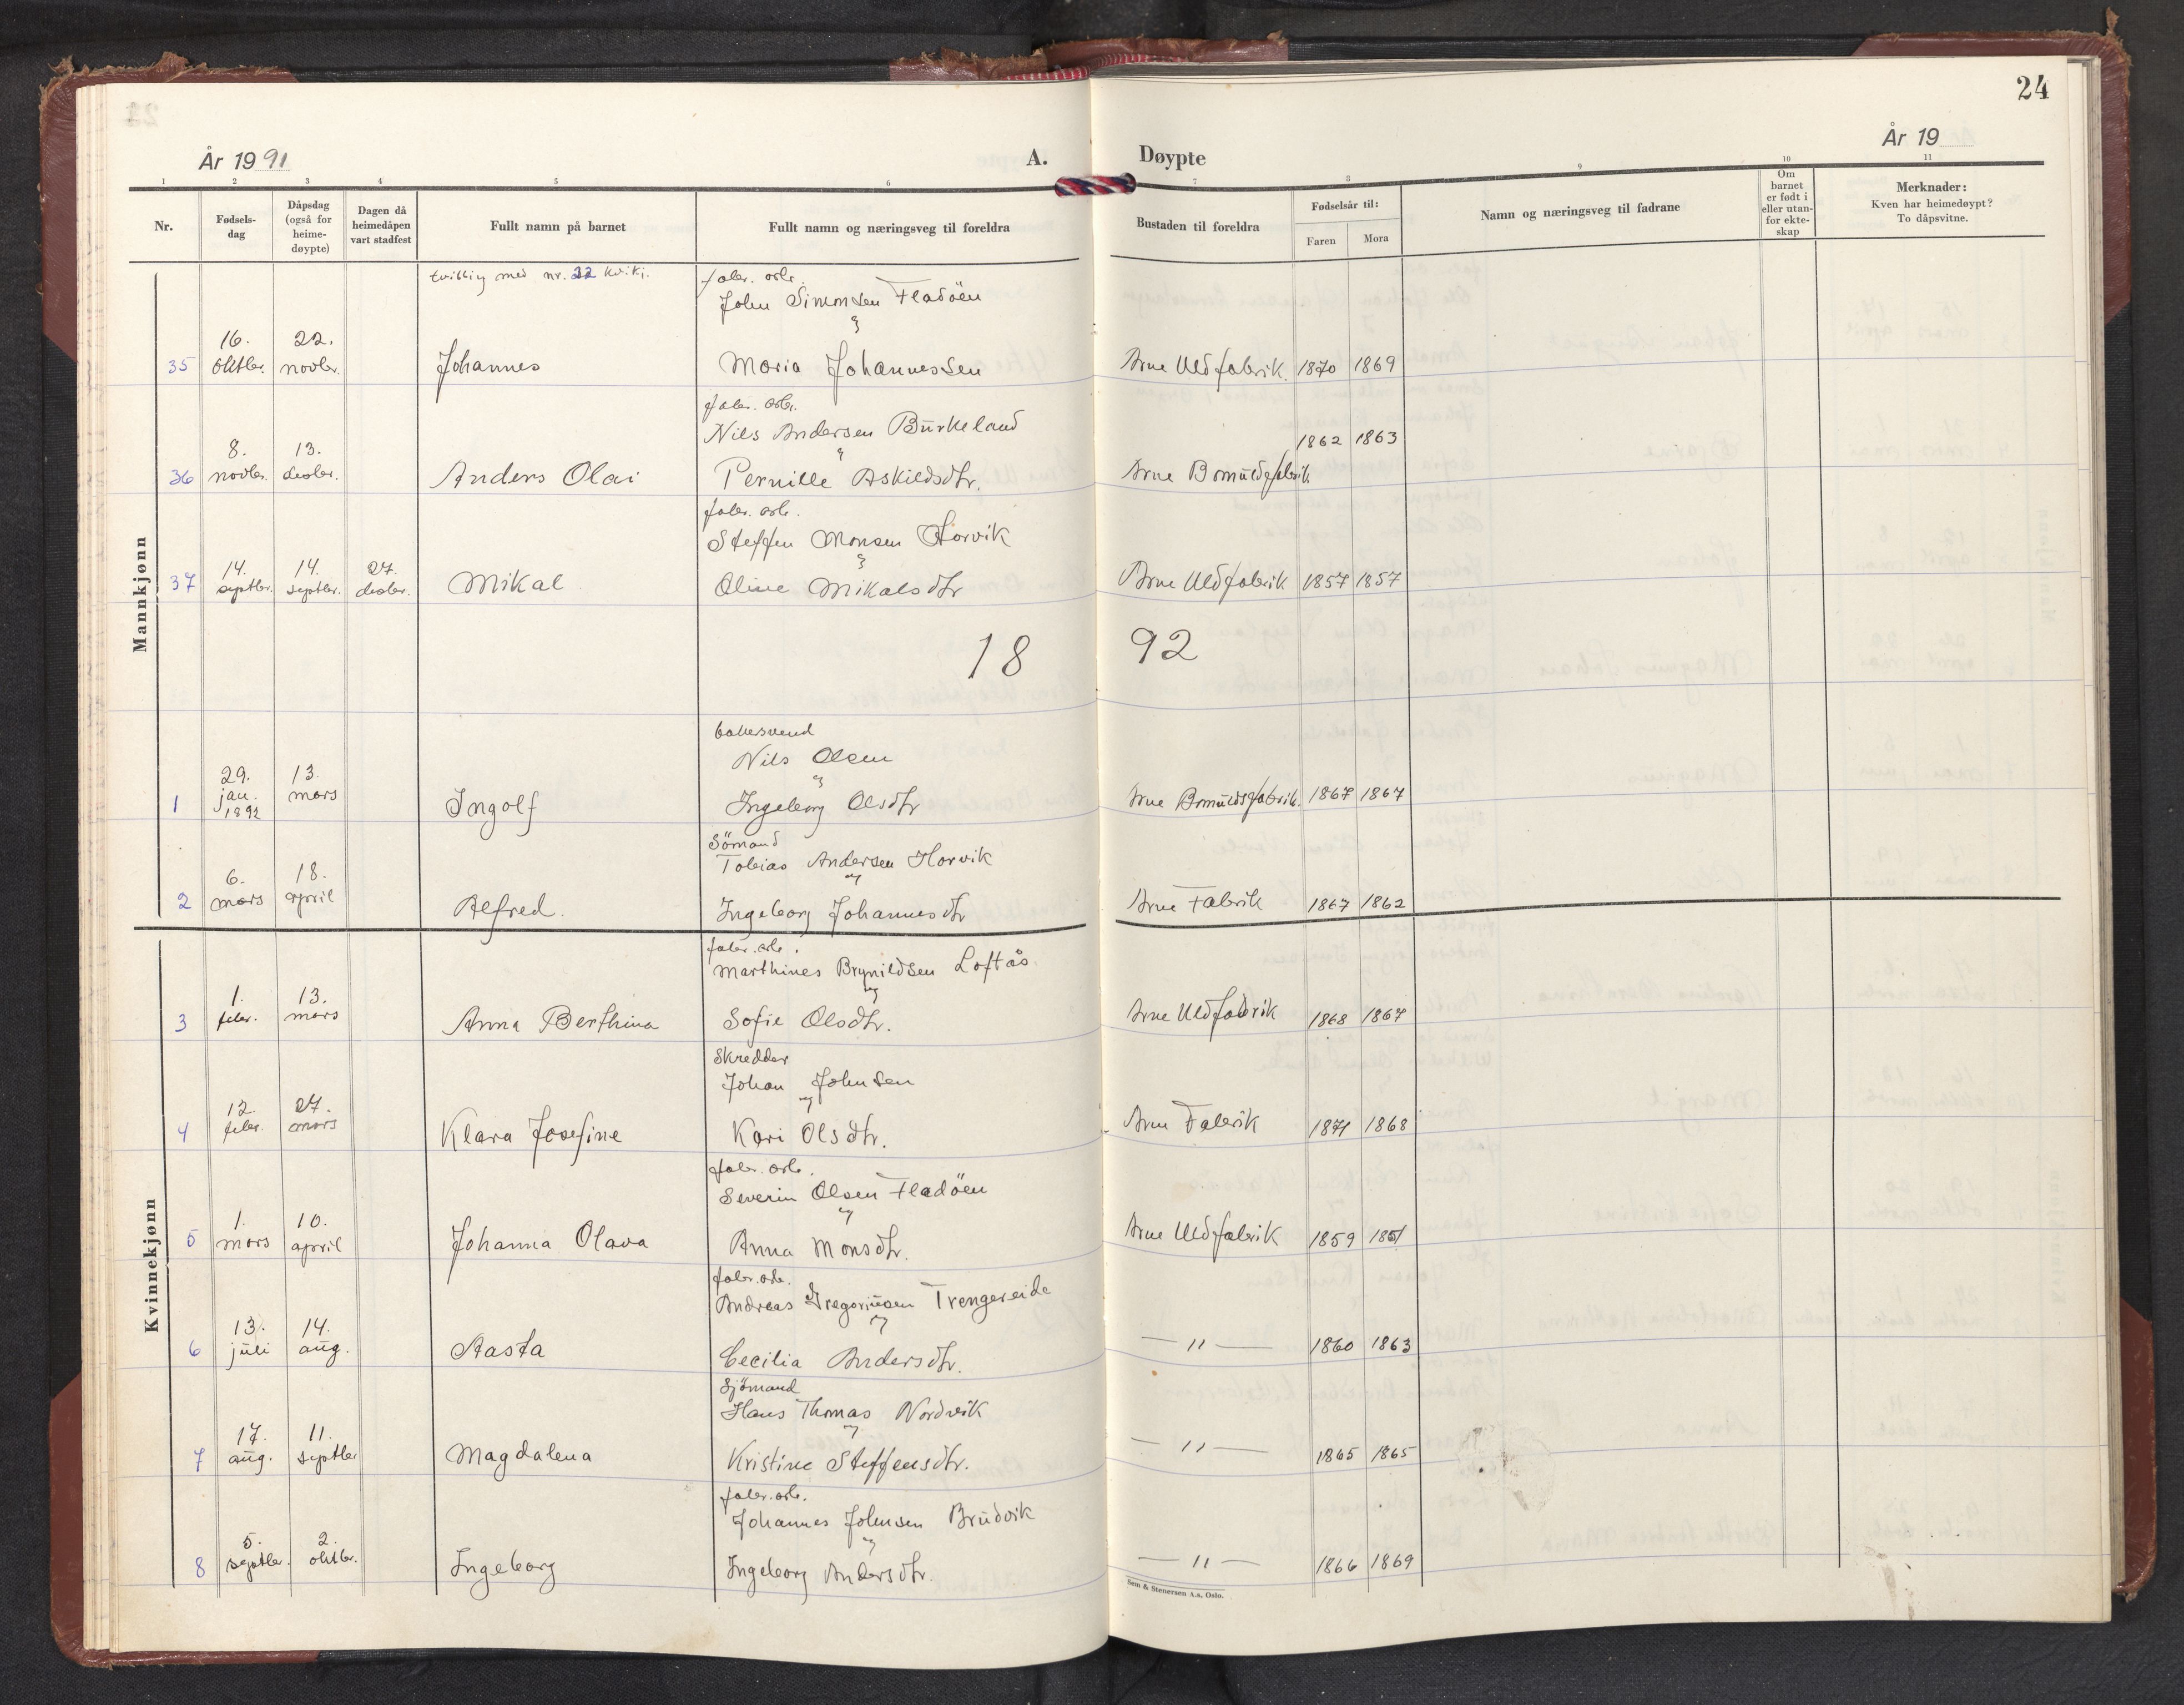 24
År 1991
A.
Døypte
År 19
1 2 3 4 5 6 7 8 9 10 11
Nr.
Fødsels-
dag
Dåpsdag
(også for
heime-
døypte)
Dagen då
heimedåpen
vart stadfest
Fullt namn på barnet
Fullt namn og næringsveg til foreldra
Bustaden til foreldra
Fødselsår til:
Faren Mora
Namn og næringsveg til fadrane
Om
barnet
er født i
eller utan-
for ekte-
skap
Merknader:
Kven har heimedøypt?
To dåpsvitne.
Mannkjønn
tvilling med nr. 22 kvikj.
fabr. arb.
John Simonsen Fladöen
&
35 16. oktbr. 22. novbr. Johannes Maria Johannessen Arne Uldfabrik. 1870 1869
fabr. arb.
Nils Andersen Bürkeland
& 1862 1863
36 8. novbr. 13. desbr. Anders Olai Pernille Askildsdtr. Arne Bomüldsfabrik
fabr. arb.
Steffen Monsen Horvik
&
37 14. septbr. 14. septbr. 27. desbr. Mikal Oline Mikalsdtr Arne Uldfabrik 1857 1857
18 92
bakersvend
Nils Olsen
&
1 29. jan. 1892 13. mars Ingolf Ingeborg Olsdtr Arne Bomüldsfabrik. 1867 1867
Sömand
Tobias Andersen Horvik
og
2 6. mars 18. april Alfred. Ingeborg Johannesdtr Arne Fabrik 1867 1862
Kvinnekjønn
fabr. arb.
Marthines Brynildsen Loftås
og
3 1. febr. 13. mars Anna Berthina Sofie Olsdtr. Arne Uldfabrik 1868 1867
Skredder
Johan Johnsen
og
4 12. febr. 27. mars Klara Josefine Kari Olsdtr. Arne Fabrik 1871 1868
fabr. arb.
Severin Olsen Fladöen
og
5 1. mars 10. april Johanna Olava Anna Monsdtr. Arne Uldfabrik 1859 1851
fabr. arb.
Andreas Gregoriüsen Trengereide
og
6 13. jüli 14. aüg. Aasta Cecilia Andersdtr. — " — 1860 1863
Sjömand
Hans Thomas Nordvik
og
7 17. aüg. 11. septbr Magdalena Kristine Steffensdtr. — " — 1865 1865
fabr. arb.
Johannes Johnsen Brüdvik
og
8 5. septbr. 2. oktbr. Ingeborg Ingeborg Andersdtr. — " — 1866 1869
Sem & Stenersen A.s, Oslo.